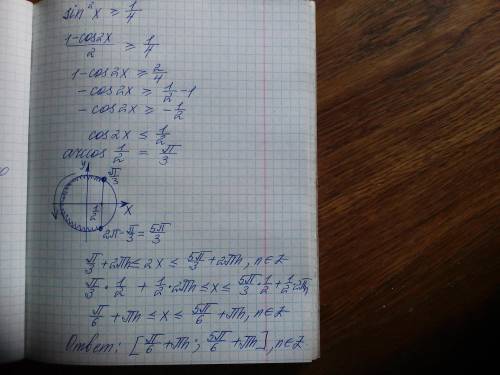 sin²x ≥ 1/4
(1-cos2x)/2 ≥ 1/4
1-cos2x ≥ 2/4
-cos2x ≥ 1/2 -1
-cos2x ≥ -1/2
cos2x ≤ 1/2
arccos 1/2 = π/3
y π/3
x
2π-π/3 = 5π/3
π/3+2πn ≤ 2x ≤ 5π/3+2πn, n∈Z
π/3·1/2 + 1/2·2πn ≤ x ≤ 5π/3·1/2+1/2·2πn
π/6 + πn ≤ x ≤ 5π/6 + πn, n∈Z
Ответ: [π/6+πn; 5π/6+πn], n∈Z